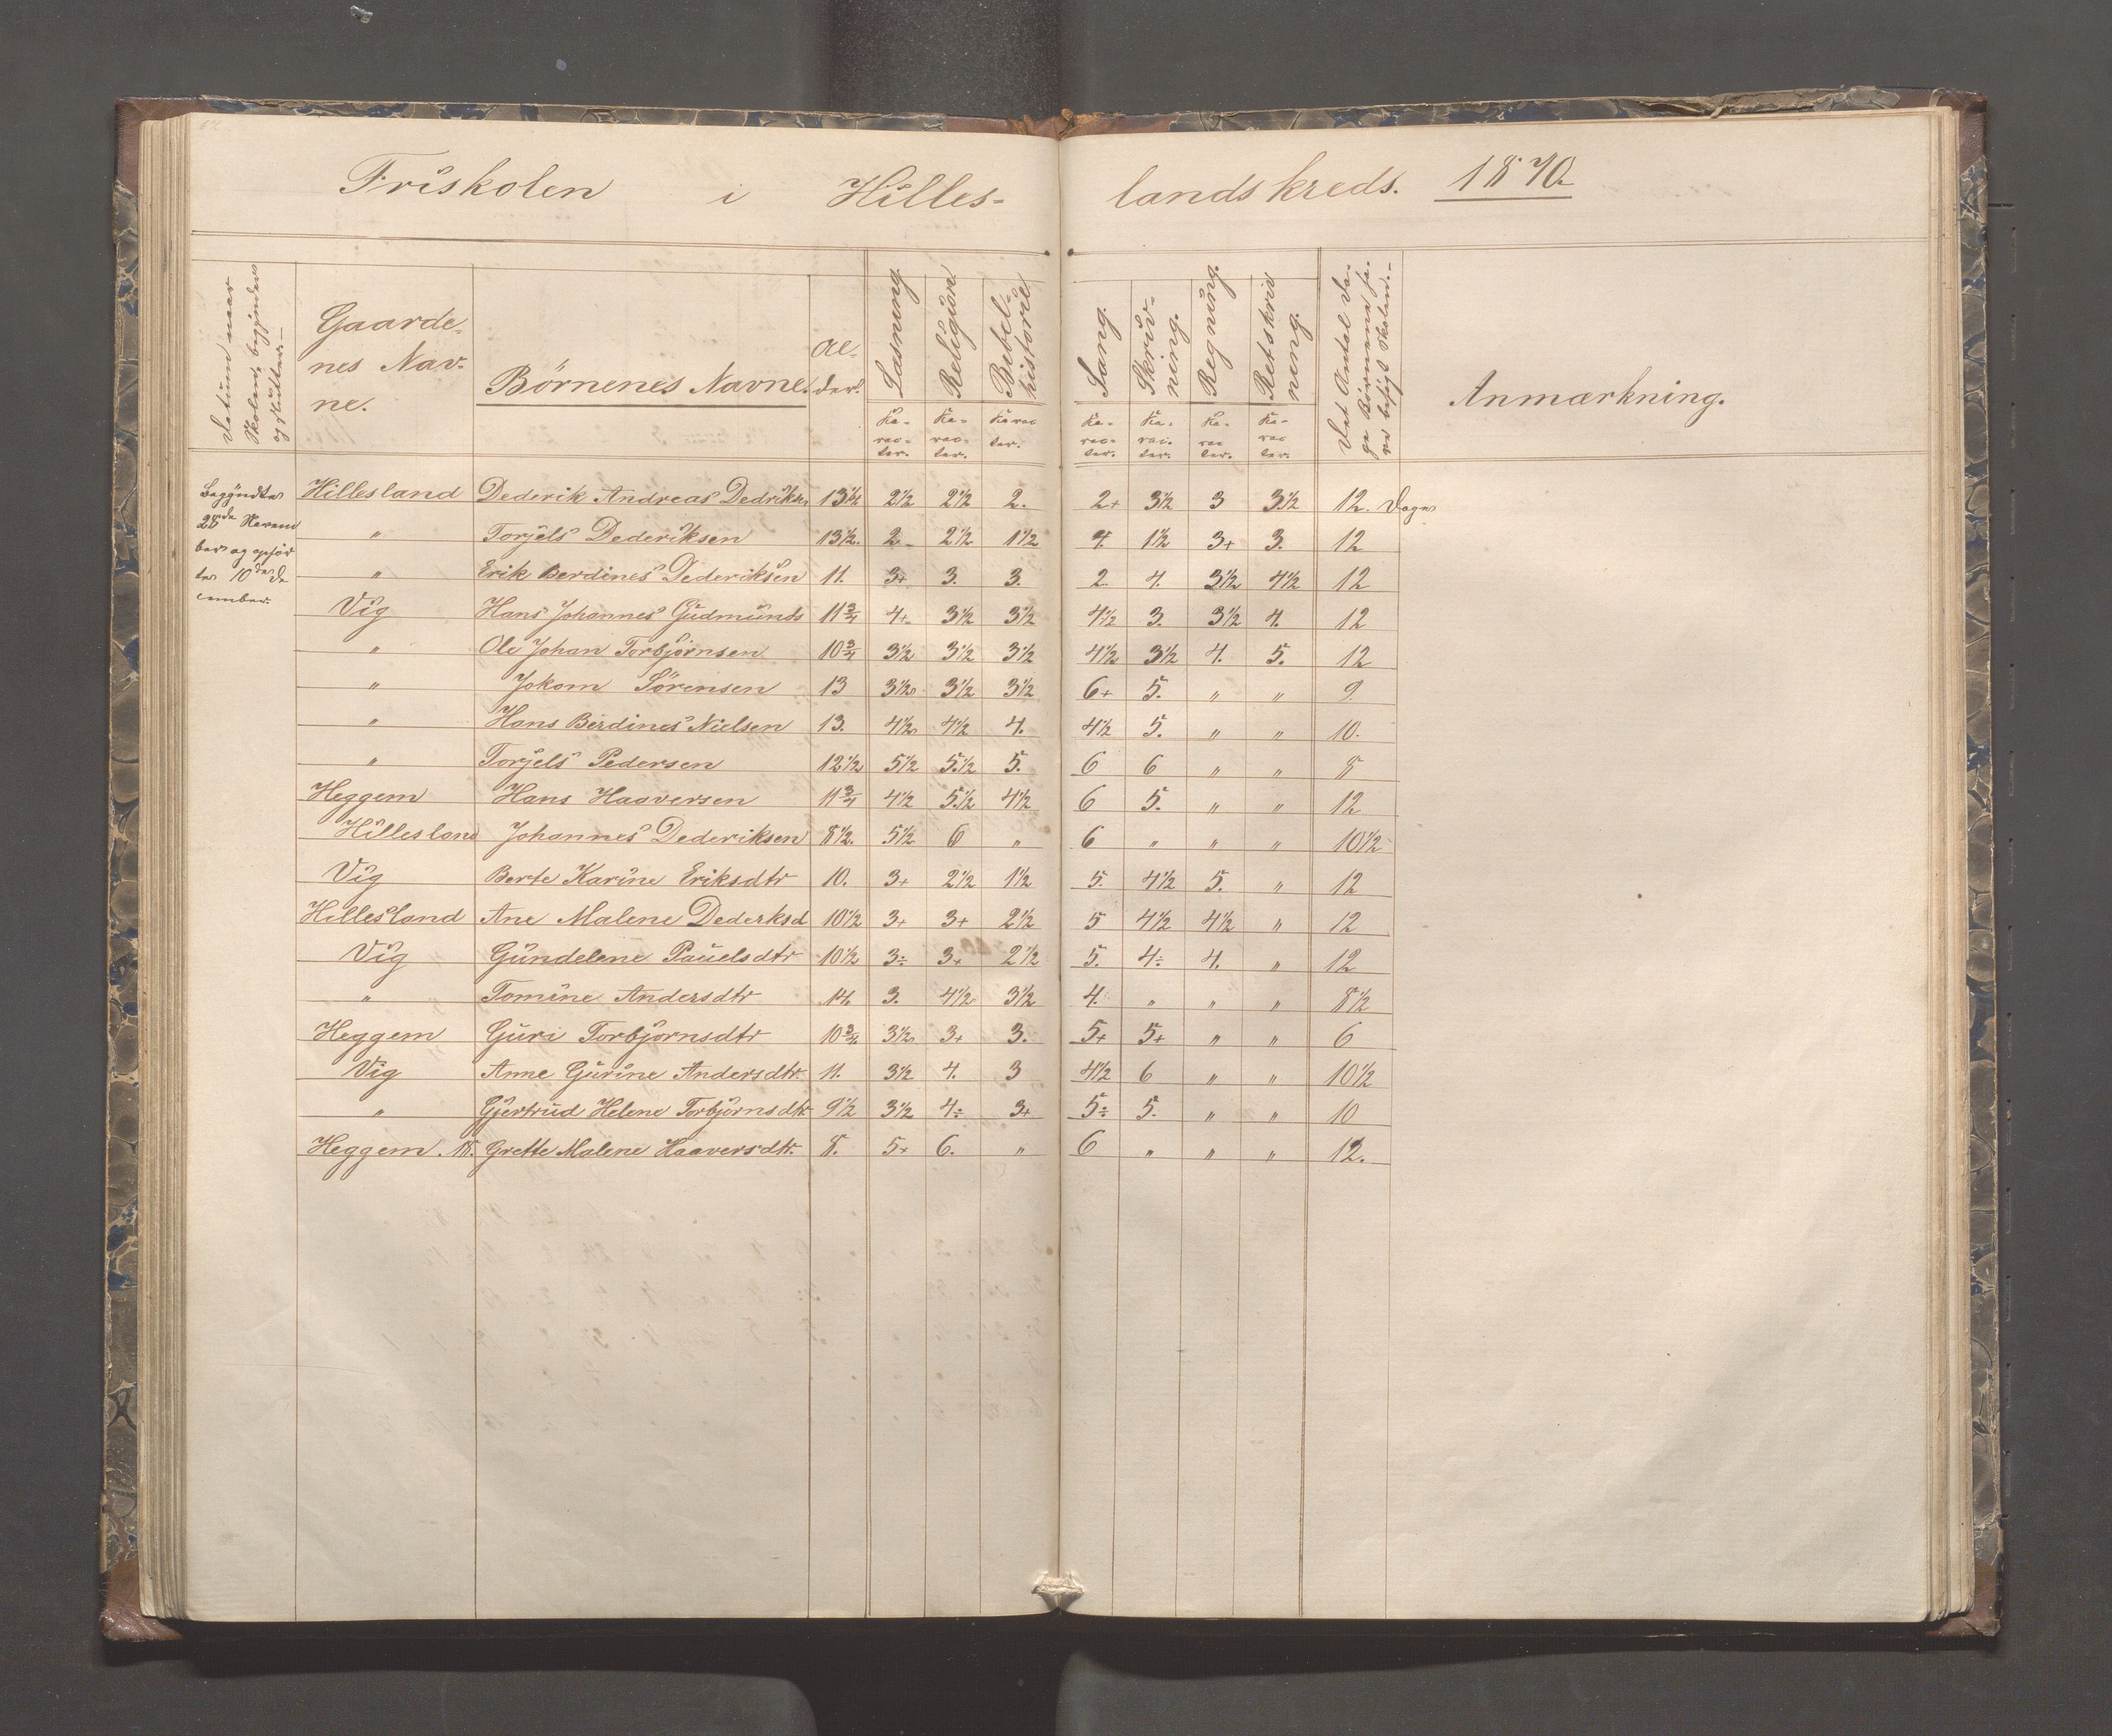 Friskolen i Hilleslandskreds. 1870.
Datum naar Skolen begynder og slutter
Gaardenes Navne.
Börnenes Navne.
Alder.
Læsning. Karacter.
Religion Karacter.
Bibelhistorie Karacter.
Sang. Karacter.
Skrivning. Karacter.
Regning. Karacter.
Retskrivning. Karacter.
Det Antal Dage Börnene have besögt Skolen.
Anmærkning.
Begyndte
28de Novem
ber og ophör
te 10de De
cember.
Hillesland Dederik Andreas Dedriksen 13 1/4 2 1/2 2 1/2 2. 2+ 3 1/2 3 3 1/2 12. Dage
" Torjels Dederiksen 13 1/2. 2 2 1/2 1 1/2 4. 1 1/2 3+ 3. 12
" Erik Berdines Dederiksen 11. 3+ 3. 3. 2 4. 3 1/2 4 1/2 12
Vig Hans Johannes Gudmunds 11 3/4 4+ 3 1/2 3 1/2 4 1/2 3. 3 1/2 4. 12
" Ole Johan Torbjörnsen 10 3/4 3 1/2 3 1/2 3 1/2 4 1/2 3 1/2 4. 5. 12
" Jokom Sörensen 13 3 1/2 3 1/2 3 1/2 6+ 5. " " 9
" Hans Berdines Nielsen 13. 4 1/2 4 1/2 4. 4 1/2 5. " " 10.
" Torjels Pedersen 12 1/2 5 1/2 5 1/2 5. 6 6 " " 8
Heggem Hans Haaversen 11 3/4 4 1/2 5 1/2 4 1/2 6 5. " " 12
Hillesland Johannes Dederiksen 8 1/2. 5 1/2 6 " 6 " " " 10 1/2
Vig Berte Karine Eriksdtr 10. 3+ 2 1/2 1 1/2 5. 4 1/2 5. " 12
Hillesland Ane Malene Dederksd 10 1/2 3+ 3+ 2 1/2 5 4 1/2 4 1/2 " 12
Vig Gundelene Pauelsdtr 10 1/2 3÷ 3+ 2 1/2 5. 4÷ 4. " 12
" Tomine Andersdtr 14. 3. 4 1/2 3 1/2 4. " " " 8 1/2
Heggem Guri Torbjörnsdtr 10 3/4 3 1/2 3+ 3. 5+ 5+ " " 6
Vig Anne Gurine Andersdtr. 11. 3 1/2 4. 3 4 1/2 6 " " 10 1/2
" Gjertrud Helene Torbjörnsdtr 9 1/2 3 1/2 4÷ 3+ 5÷ 5. " " 10
Heggem. 18. Grette Malene Haaversdtr. 8. 5+ 6. " 6 " " " 12.